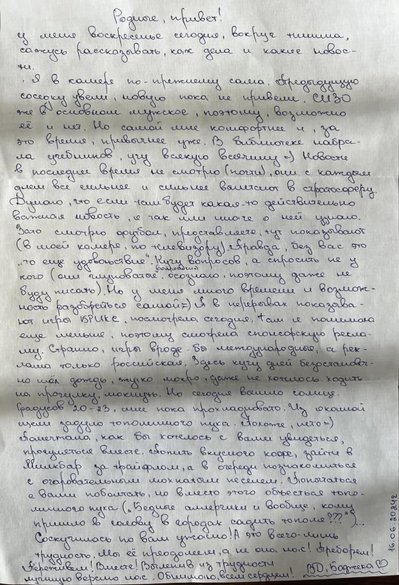 Родные, привет!
у меня воскресенье сегодня, вокруг тишина,
сажусь рассказывать, как дела и какие новос-
ти.
Я в камере по-прежнему сама. Предыдущую
соседку увели, новую пока не привели. СИЗО
же в основном мужское, поэтому, возможно
её и нет. Но самой мне комфортнее и, за
это время, привычнее уже. В библиотеке набра-
ла учебников, учу всякую всячину =) Новости
в последнее время не смотрю (почти), они с каждым
днем все сильнее и сильнее в стратосферу.
Думаю, что если там будет какая-то действительно
важная новость, я так или иначе о ней узнаю.
Зато смотрю футбол, представляете, тут показывают
(в моей камере, по телевизору) Правда, без вас это
"то еще удовольствие". Кучу вопросов, а спросить не у
кого (они поэтому даже не
буду писать) Но у меня много времени и возмож-
ность разобраться самой =) А в перерывах показыва-
ют игры БРИКС, посмотрела сегодня, там я понимаю
еще меньше, поэтому смотрела спонсорскую рекла-
му. Странно, игры вроде бы международные, а рек-
лама только российская. Здесь кучу дней безостановоч-
но шел дождь, жутко мокро, даже не хотелось ходить
на прогулки, мокнуть. Но сегодня вышло солнце,
градусов 20-23, мне пока прохладновато. Из окошка
шлем задуло тополиного пуха. Похоже, лето =)
Помечтала, как бы хотелось с вами увидеться,
прогуляться вместе. Попить вкусного кофе, зайти в
Милкбар за трайфлом, а в очереди познакомиться
с очаровательным мохнатым песелем. Попытаться
с вами поболтать, но вместо этого объесться топо-
линого пуха. (Бедные аллергики и вообще, кому
пришло в голову в городах садить тополя!?? ")...
Соскучилась по вам ужасно! А это всего-лишь
трудность. Мы её преодолеем, а не она нас! Поборем!
Переживем! Вместе! Вылепив из трудности
лучшую версию нас. Обнимаю, всем сердцем!
16.06.2024г